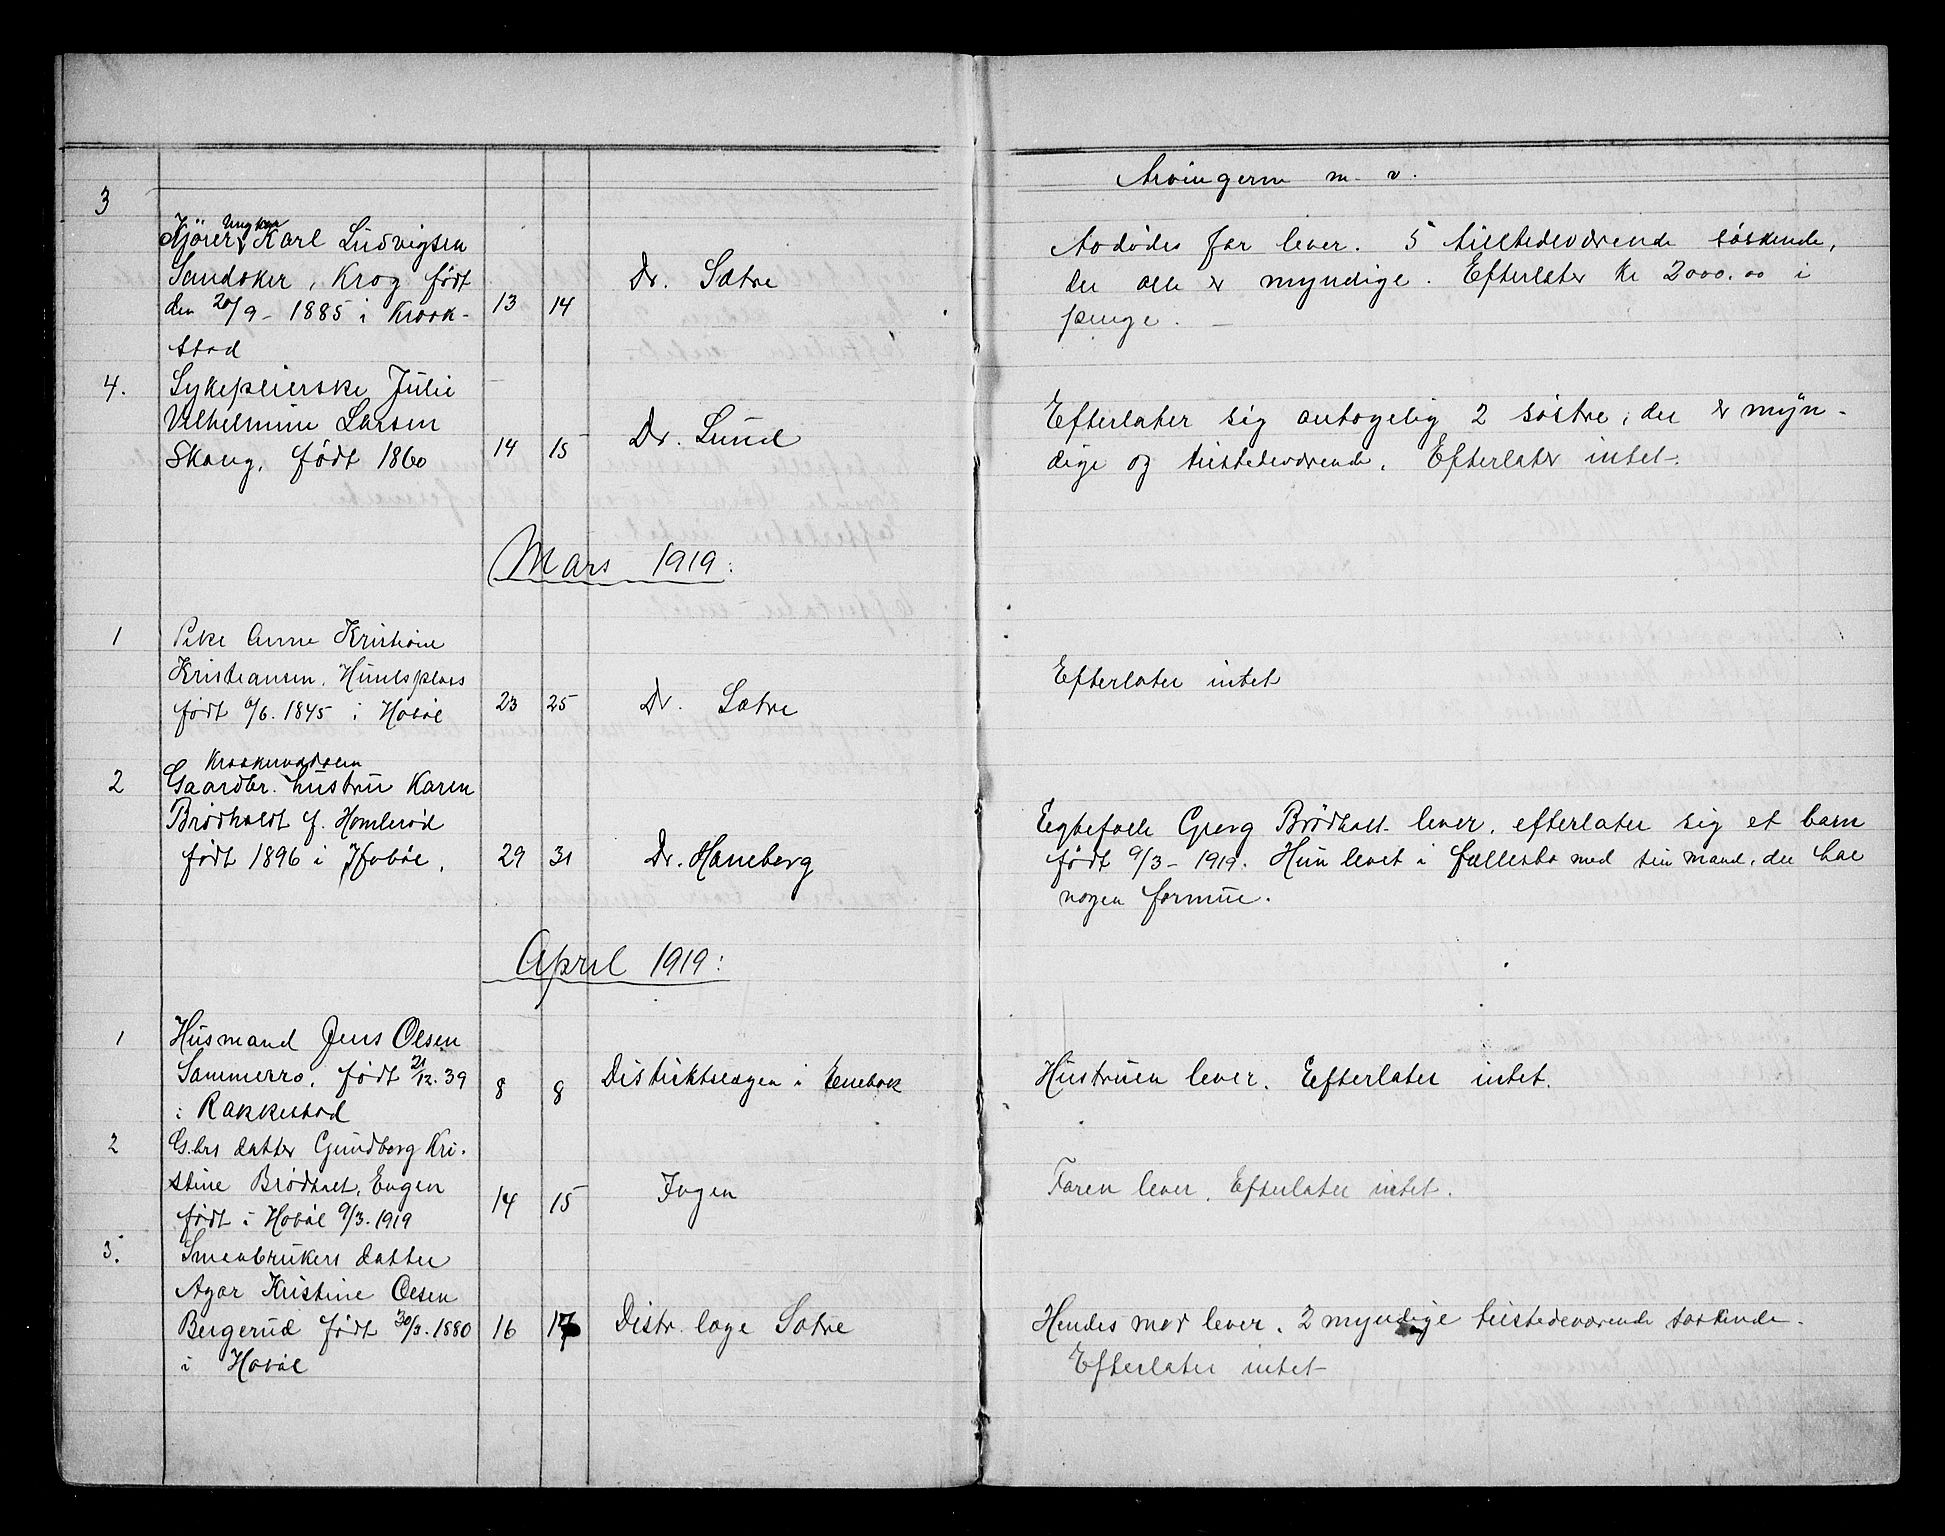 Arvingerne m. v.
3
Ungkar
Kjører Karl Ludvigsen
Sandaker, Krog født
den 20/9 - 1885 i Kraak-
stad
13 14 Dr. Sætre
Avdødes far lever. 5 tilstedeværende søskende,
der alle er myndige. Efterlater kr 2000.00 i
penge.
4. Sykepleierske Julie
Vilhelmine Larsen
Skaug, født 1860
14 15 Dr. Lund
Efterlater sig antagelig 2 søstre, der er myn-
dige og tilstedeværende. Efterlater intet.
Mars 1919:
1 Pike Anne Kristiane
Kristiansen, Huuls plads
født 6/6. 1845 i Hobøl
23 25 Dr. Sætre
Efterlater intet
2
Gaardbr. hustru Karen
Brødholdt f. Homlerød
født 1896 i Hobøl.
29 31 Dr. Haneborg
Egtefælle Georg Brødholt lever. efterlater sig et barn
født 9/3 - 1919. Hun levet i fællesbo med sin mand, der har
nogen formue.
April 1919:
1 Husmand Jens Olsen
Sammerro, født 21/12. 39
i Rakkestad
8 8 Distriktslægen i Enebak
Hustruen lever. Efterlater intet.
2 G.brs datter Gundborg Kri-
stine Brødholt, Engen
født i Hobøl 9/3. 1919
14 15 Ingen
Faren lever. Efterlater intet.
3. Smaabrukers datter
Agar Kristine Olsen
Bergerud født 30/3. 1880
i Hobøl
16 17 Distr. læge Sætre
Hendes mor lever. 2 myndige tilstedeværende søskende.
Efterlater intet